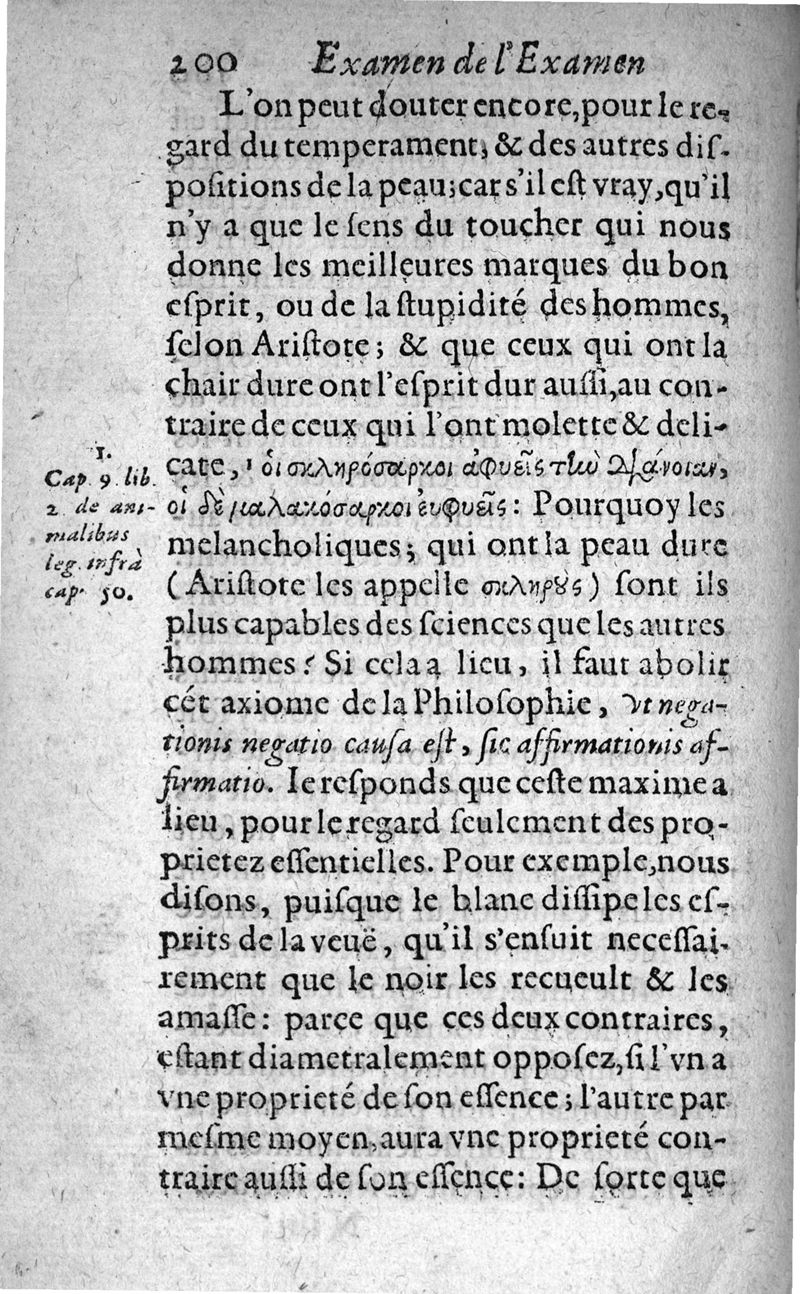 200 Examen de l'Examen
L'on peut douter encore, pour le re-
gard du temperament, & des autres diſ-
poſitions de la peau; car s'il eſt vray, qu'il
n'y a que le ſens du toucher qui nous
donne les meilleures marques du bon
eſprit, ou de la ſtupidité des hommes,
ſelon Ariſtote; & que ceux qui ont la
chair dure ont l'eſprit dur auſſi, au con-
traire de ceux qui l'ont molette & deli-
cate, ¹ οἱ σκληρόσαρκοι ἀφυεῖς τὴν διάνοιαν,
οἱ δὲ μαλακόσαρκοι ἐυφυεῖς: Pourquoy les
melancholiques; qui ont la peau dure
(Ariſtote les appelle σκληροὺς) ſont ils
plus capables des ſciences que les autres
hommes? Si cela a lieu, il faut abolir
cét axiome de la Philoſophie, Vt nega-
tionis negatio cauſa eſt, ſic affirmationis af-
firmatio. Ie reſponds que ceſte maxime a
lieu, pour le regard ſeulement des pro-
prietez eſſentielles. Pour exemple, nous
diſons, puiſque le blanc diſſipe les eſ-
prits de la veuë, qu'il s'enſuit neceſſai-
rement que le noir les recueult & les
amaſſe: parce que ces deux contraires,
eſtant diametralement oppoſez, ſi l'vn a
vne proprieté de ſon eſſence; l'autre par
meſme moyen, aura vne proprieté con-
traire auſſi de ſon eſſence: De ſorte que
1.
Cap. 9. lib.
2. de ani-
malibus
leg. infra
cap. 50.